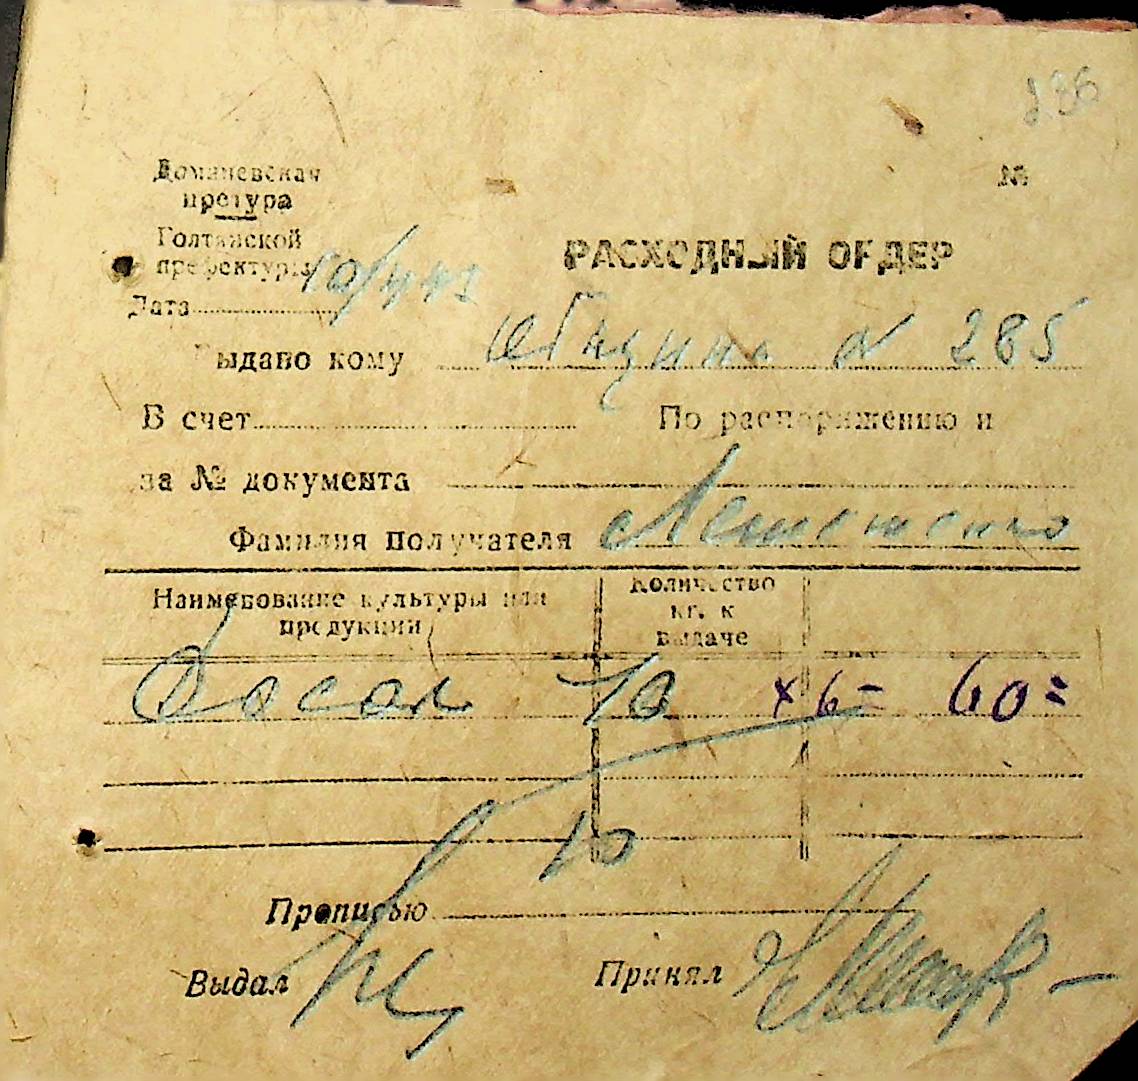 236
Доманевская
претура
№
Голтянской
префектуры
РАСХОДНЫЙ ОРДЕР
Дата 10/
Выдаво кому Общине № 285
В счет По распоряжению и
за № документа
Фамилия получателя
Наименование культуры или продукции Количество кг. к выдаче
Фасоль 10 х 6= 60=
10
Прописью
Выдал Принял